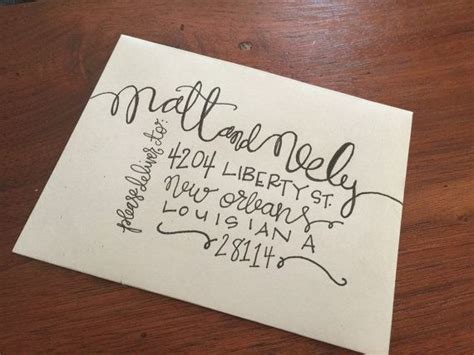 Matt and Neely
please deliver to:
4204 LIBERTY ST.
New Orleans
LOUISIANA
28114